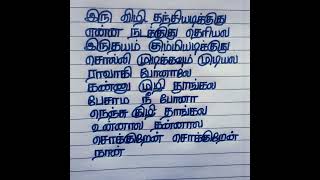 இரு விழி தந்தியடிக்குது
என்ன நடக்குது தெரியல
இருதயம் கும்மியடிக்குது
சொல்லி முடிக்கவும் முடியல
ராவாகி போனாலே
கண்ணு முழி தூங்கல
பேசாம நீ போனா
நெஞ்சு குழி தாங்கல
உன்னால தன்னால
சொக்குறேன் சொக்குறேன்
நான்